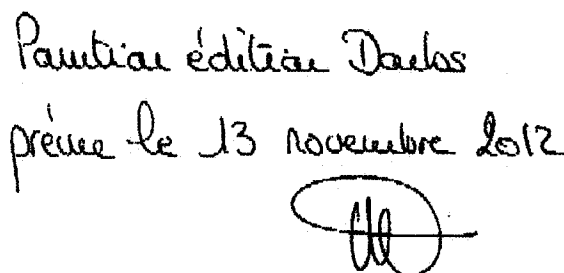 Parution édition Doubs
prévue le 13 novembre 2012